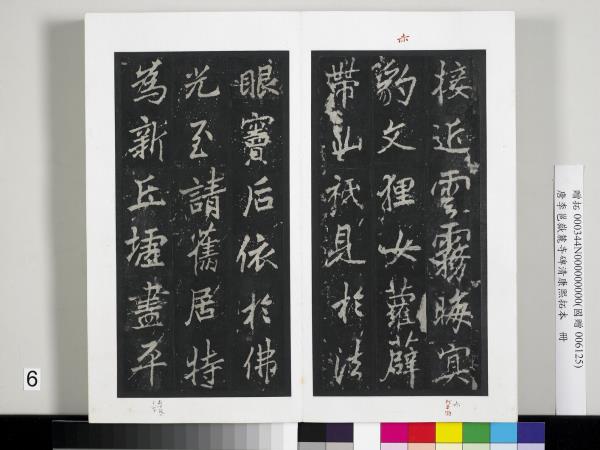 接近雲霧晦寘
豹文狸女蘿薜
帶山祇見於法
眼竇后依於佛
光至請舊居特
為新丘墟盡平
赤
6
贈拓 000344N000000000(國贈 006125)
唐李邕嶽麓寺碑清康熙拓本 冊